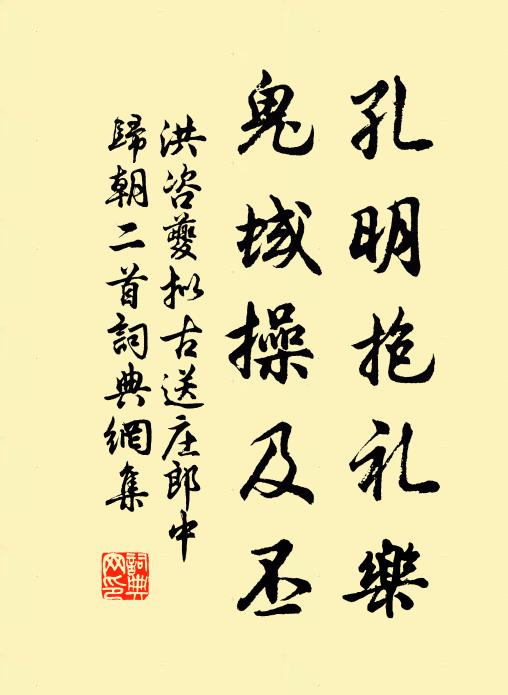 孔明抱礼樂
鬼域操及丕
洪咨夔拟古送庄郎中
歸朝二首詞典網集
詞典
网印